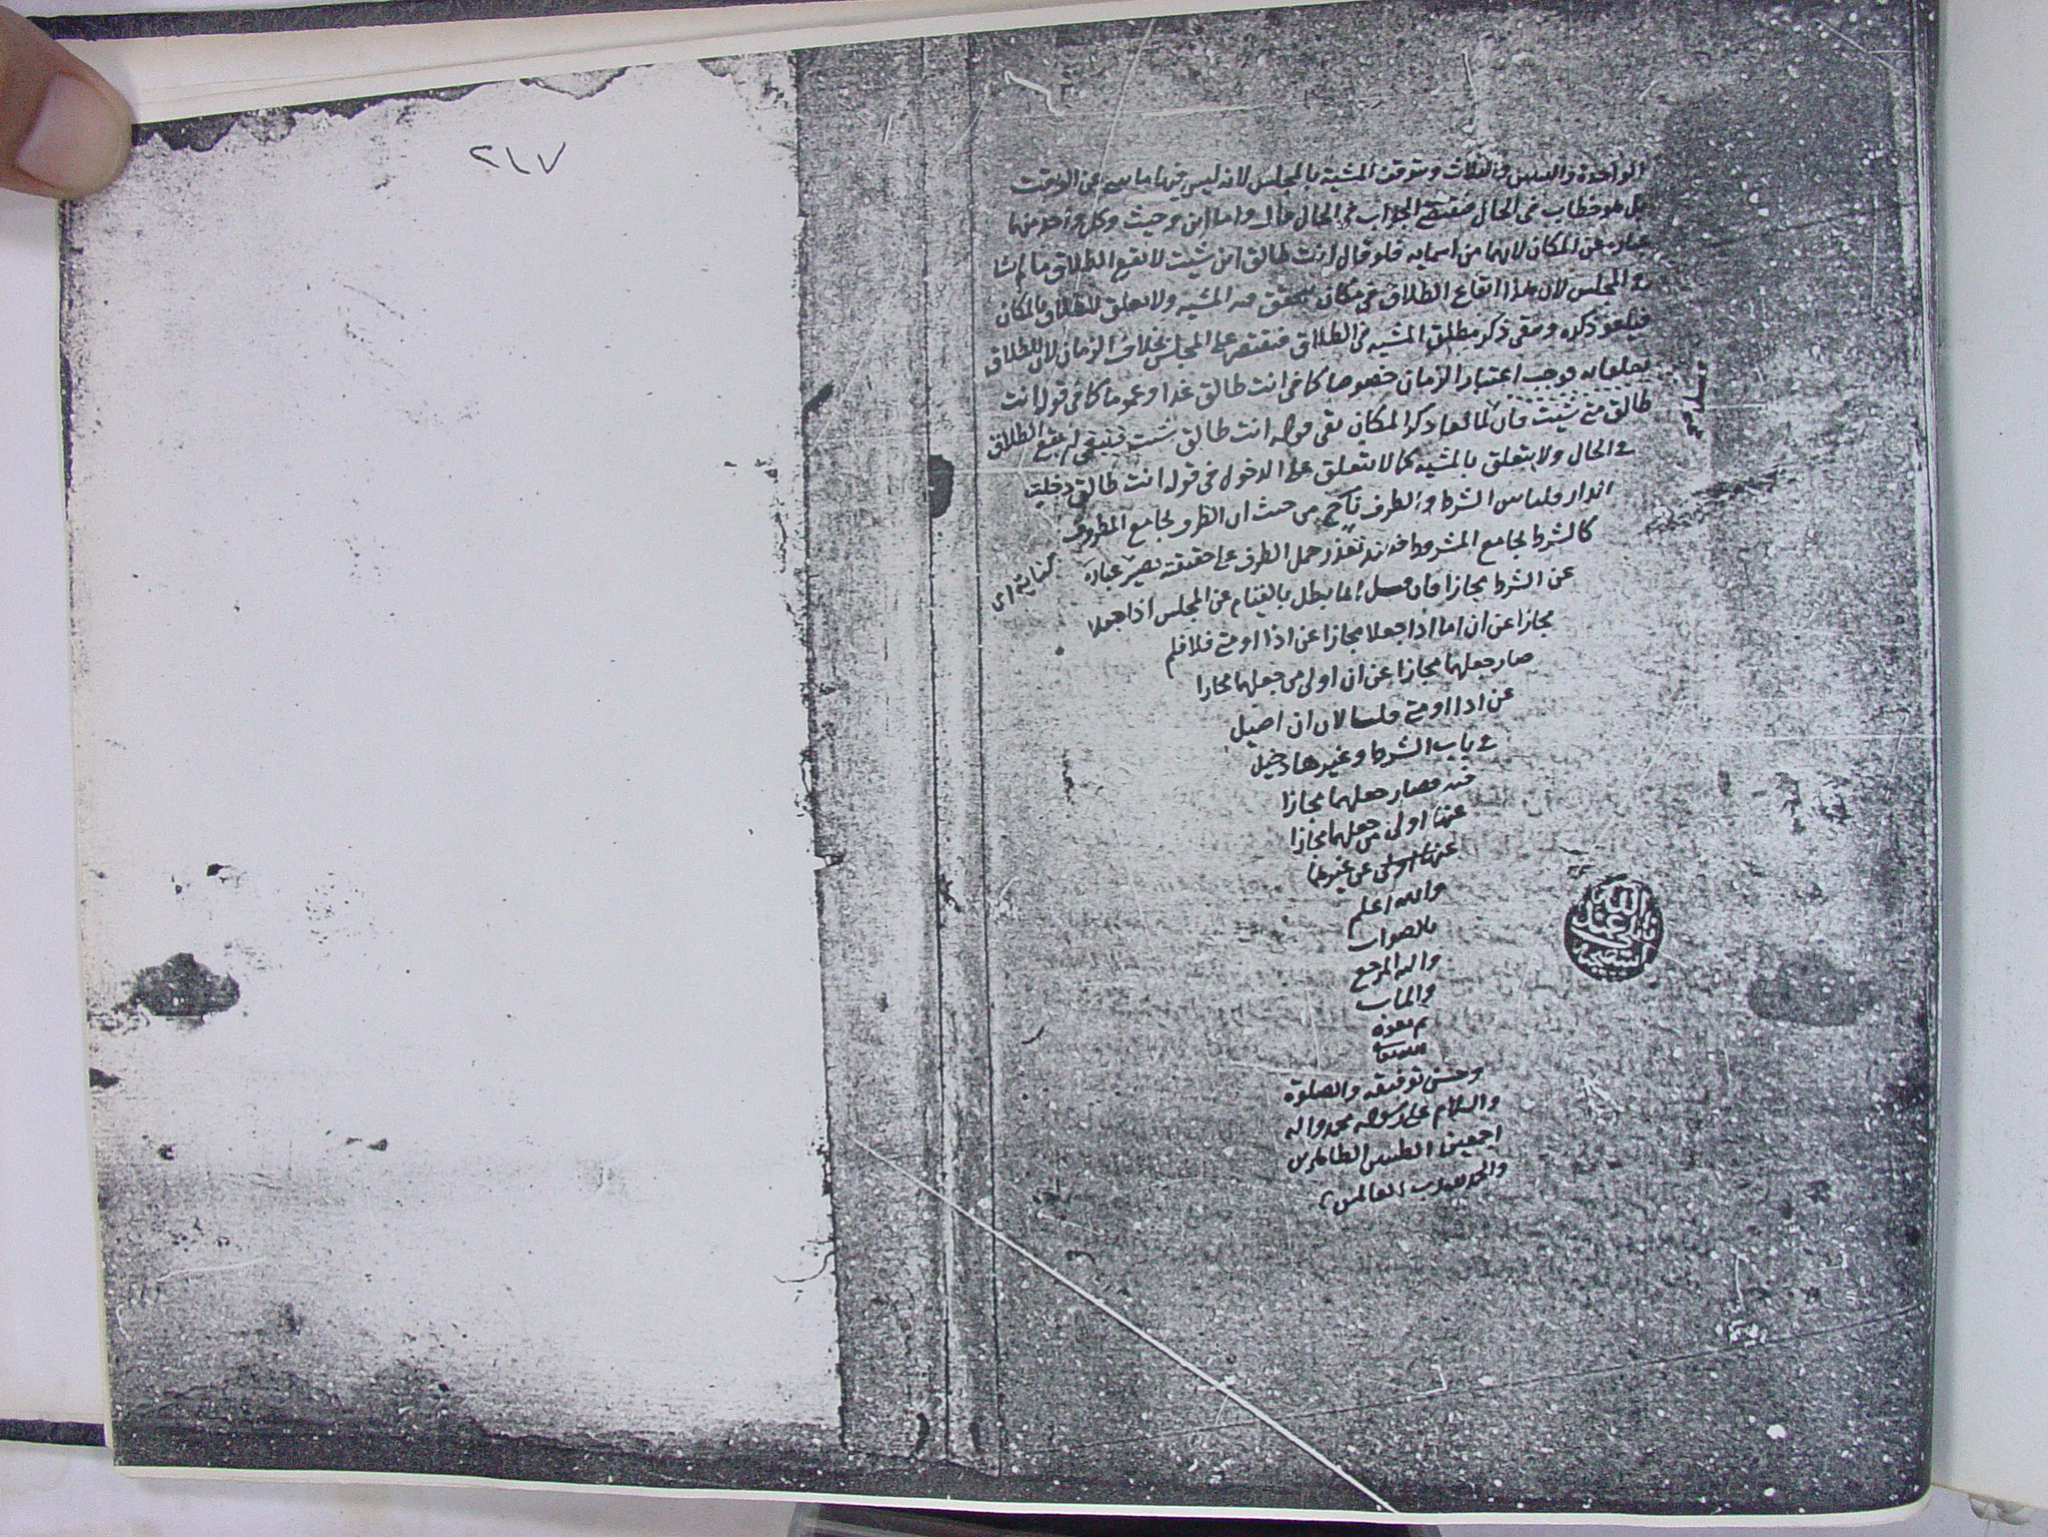 الواحدة والثنتين والثلاث وتتوقت المشية بالمجلس لانه ليس فيها ما ينبي عن الوقت
بل هو خطاب في الحال فيقتضي الجواب في الحال قال واما اين وحيث وكل واحد منهما
عبارة عن المكان لانهما من اسمايه فلو قال انت طالق اين شيت لا يقع الطلاق ما لم تشا
في المجلس لان هذا ايقاع الطلاق في مكان يتحقق فيه المشيه ولا تعلق للطلاق بالمكان
فيلغو ذكره وبقي ذكر مطلق المشيه في الطلاق فيقتصر على المجلس بخلاف الزمان لان للطلاق
تعلقا به فوجب اعتبار الزمان خصوصا كما في انت طالق غدا او عموما كما في قوله انت
طالق متى شيت فان لما لغا ذكر المكان بقي قوله انت طالق شيت فينبغي ان يقع الطلاق
في الحال ولا يتعلق بالمشيه كما لا يتعلق على الدخول في قوله انت طالق دخلت
الدار قلنا بين الشرط والظرف من حيث ان الظرف يجامع المظروف
كالشرط يجامع المشروط فعند تعذر حمل الظرف على حقيقته يصير عبارة
عن الشرط مجازا فان قيل انما يبطل بالقيام عن المجلس اذا جعلا
مجازا عن ان اما اذا جعلا مجازا عن اذا او متى فلا فلم
صار جعلهما مجازا عن ان اولى من جعلهما مجازا
عن اذا او متى قلنا لان ان اصيل
في باب الشرط وغيرها دخيل
فيه فصار جعلهما مجازا
عنها اولى من جعلهما مجازا
عن غيرها
والله اعلم
بالصواب
واليه المرجع
والماب
تم بعون
الله تعالى
وحسن توفيقه والصلوة
والسلام على رسوله محمد واله
اجمعين الطيبين الطاهرين
والحمد لله رب العالمين
٢١٧